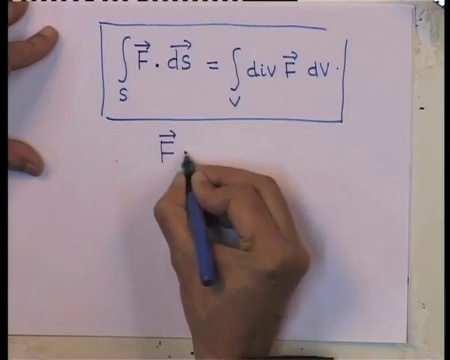 ∫_S F⃗ · d⃗S = ∫_V div F⃗ dV.
F⃗